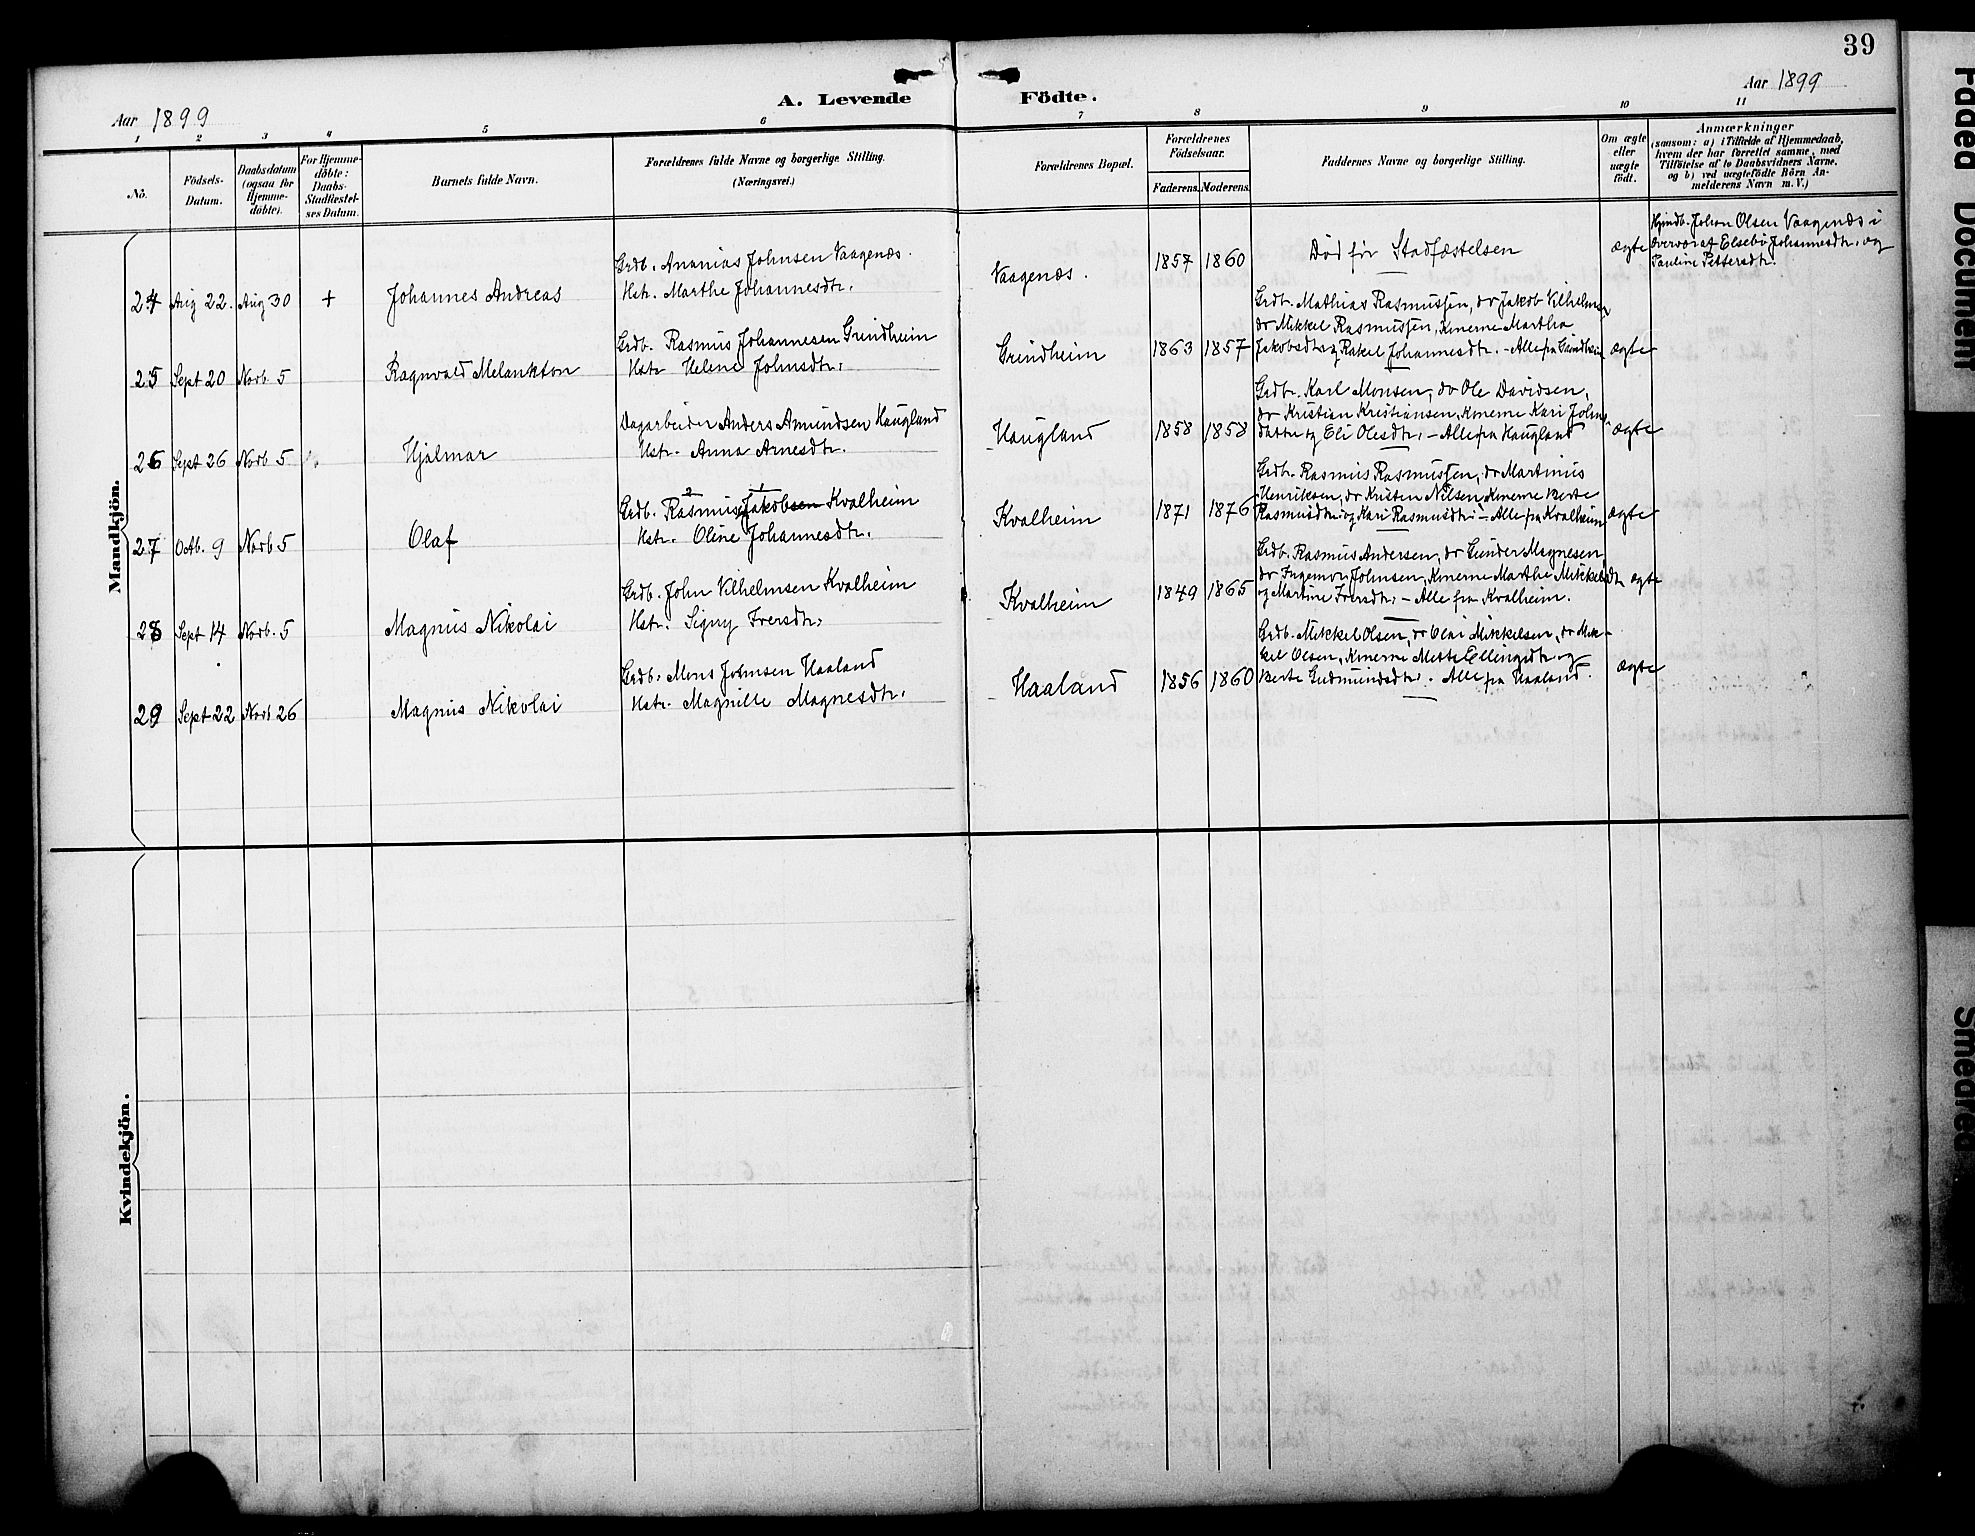 39
Aar 1899
A. Levende Födte.
Aar 1899
1 2 3 4 5 6 7 8 9 10 11
No.
Födsels-
Datum.
Daabsdatum
(ogsaa for
Hjemme-
döbte).
For Hjemme-
döbte:
Daabs-
Stadfæstel-
ses Datum.
Barnets fulde Navn.
Forældrenes fulde Navne og borgerlige Stilling.
(Næringsvei.)
Forældrenes Bopæl.
Forældrenes
Födselsaar.
Faderens. Moderens.
Faddernes Navne og borgerlige Stilling.
Om ægte
eller
uægte
födt.
Anmærkninger
(saasom: a) i Tilfælde af Hjemmedaab,
hvem der har forrettet samme, med
Tilföielse af to Daabsvidners Navne,
og b) ved uægtefödte Börn An-
melderens Navn m. V.)
Mandkjön.
24 Aug 22. Aug 30 + Johannes Andreas
Grdb. Ananias Johnsen Vaagenæs.
Hstr. Marthe Johannesdtr.
Vaagenæs. 1857 1860
Død før Stadfæstelsen
ægte
Hjmdb. Johan Olsen Vaagenæs i
overvær af Elsebö Johannesdtr. og
Pauline Pettersdtr.
25 Sept 20 Novb 5 Ragnvald Melankton
Grdb. Rasmus Johannesen Grindheim
Hstr Helene Johnsdtr.
Grindheim 1863 1857
Grdb. Mathias Rasmussen, do Jakob Vilhelmsen
do Mikkel Rasmussen, Knerne Martha
Jakobsdtr og Rakel Johannesdtr. - Alle fra Grindheim
ægte
26 Sept 26 Novb 5 Hjalmar
Dagarbeider Anders Amundsen Haugland
Hstr. Anna Arnesdtr.
Haugland 1858 1858
Grdb. Karl Monsen, do Ole Davidsen,
do Kristian Kristiansen, Knerne Kari Johns
datter og Eli Olesdtr. - Alle fra Haugland
ægte
27 Octb. 9 Novb 5 Olaf
2 1
Grdb. Rasmus Jakobsen Kvalheim
Hstr. Oline Johannesdtr.
Kvalheim 1871 1876
Grdb. Rasmus Rasmussen, do Martinus
Henriksen, do Kristen Nilsen, Knerne Berte
Rasmusdtr og Kari Rasmusdtr. - Alle fra Kvalheim
ægte
28 Sept 14 Novb. 5 Magnus Nikolai
Grdb. John Vilhelmsen Kvalheim
Hstr. Signy Iversdtr.
Kvalheim 1849 1865
Grdb. Rasmus Andersen, do Gunder Magnesen
do Ingemon Johnsen, Knerne Marthe Mikkelsdtr
og Martine Iversdtr. - Alle fra Kvalheim.
ægte
29 Sept 22 Novb 26 Magnus Nikolai
Grdb. Mons Johnsen Haaland
Hstr. Magnille Magnesdtr.
Haaland 1856 1860
Grdb. Mikkel Olsen, do Olai Mikkelsen, do Mik-
kel Olsen, Knerne Mette Ellingsdtr og
Berte Gudmundsdtr. Alle fra Haaland.
ægte
Kvindekjön.
Faded Document
Smeared